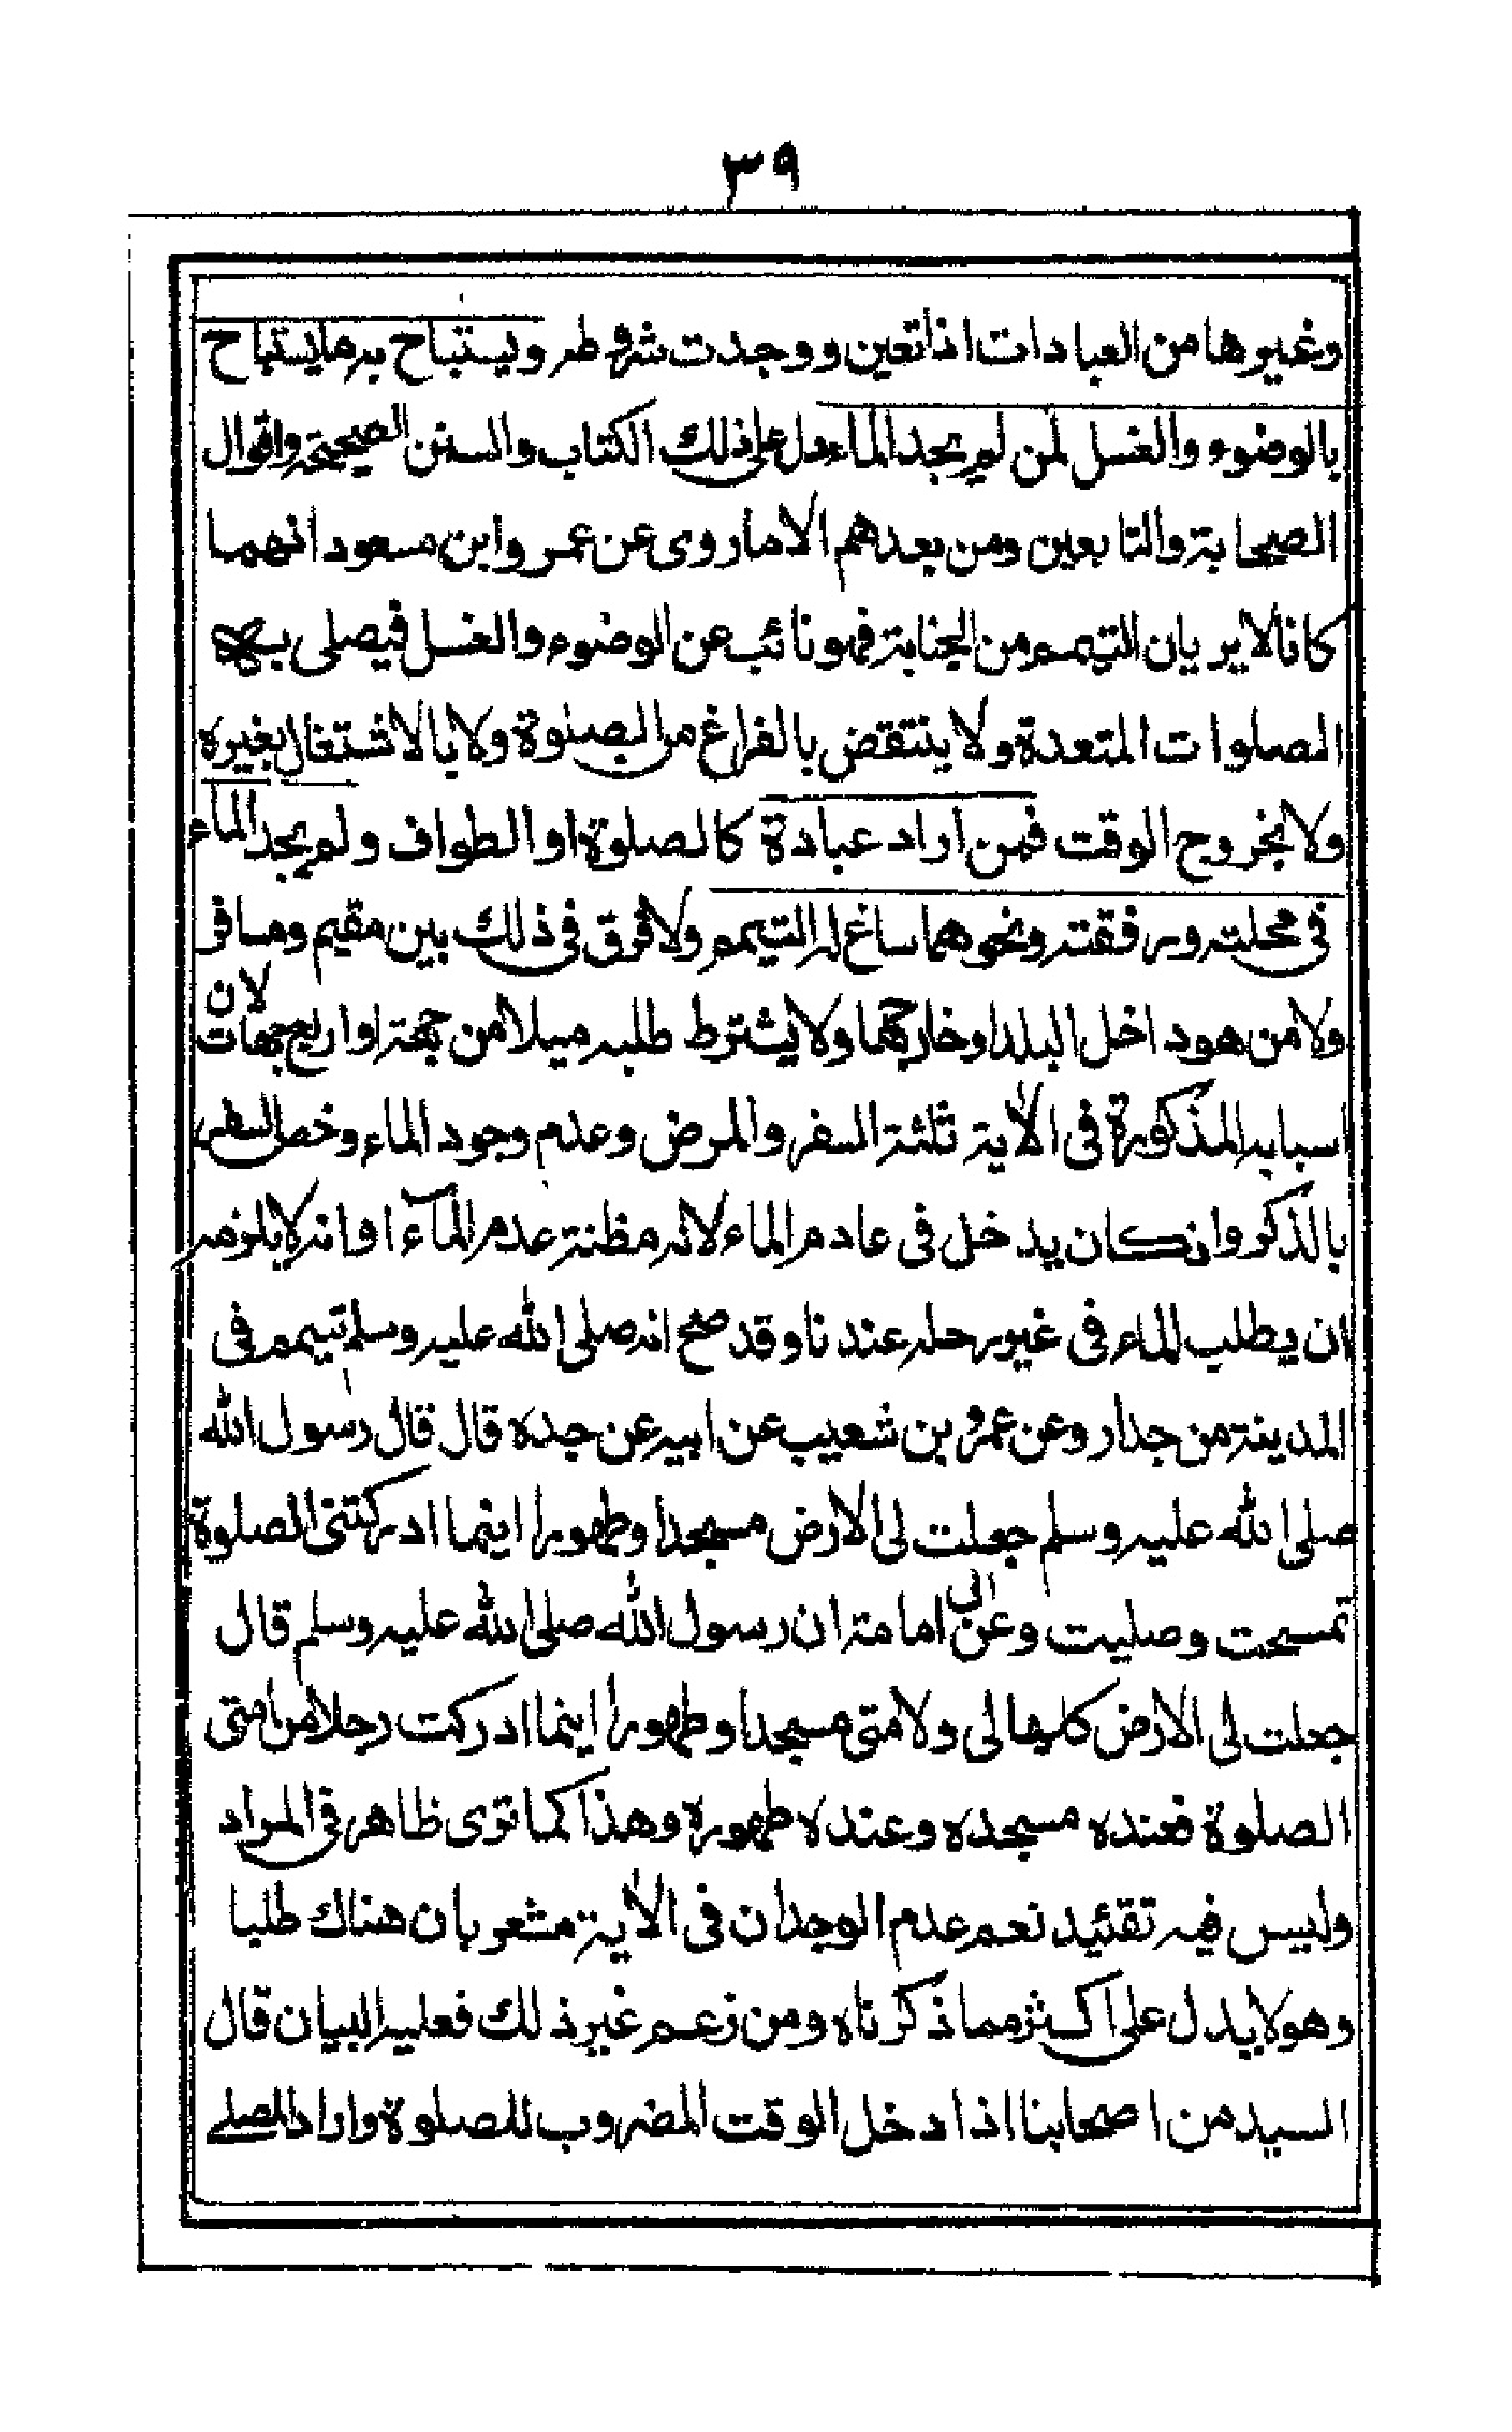 ٣٩
وغيرها من العبادات اذا تعين ووجدت شروطه ويستباح به ما يستباح
بالوضوء والغسل لمن لم يجد الماء دل على ذلك الكتاب والسنن الصحيحة واقوال
الصحابة والتابعين ومن بعدهم الا ما روى عن عمر وابن مسعود انهما
كانا لا يريان التيمم من الجنابة فهو نائب عن الوضوء والغسل فيصلى به
الصلوات المتعدة ولا ينتقض بالفراغ من الصلوة ولا بالاشتغال بغيره
ولا بخروج الوقت فمن اراد عبادة كالصلوة او الطواف ولم يجد الماء
فى محلته ورفقته ونحوهما ساغ له التيمم ولا فرق فى ذلك بين مقيم ومسافر
ولا من هو داخل البلد او خارجها ولا يشترط طلبه ميلا من جهة او اربع جهات لان
اسبابه المذكورة فى الآية ثلثة السفر والمرض وعدم وجود الماء وخص السفر
بالذكر وان كان يدخل فى عادم الماء لانه مظنة عدم المآء او انه لا يلزمه
ان يطلب الماء فى غير رحله عندنا وقد صح انه صلى الله عليه وسلم تيمم فى
المدينة من جدار وعن عمرو بن شعيب عن ابيه عن جده قال قال رسول الله
صلى الله عليه وسلم جعلت لى الارض مسجدا وطهورا اينما ادركتنى الصلوة
تمسحت وصليت وعن ابى امامة ان رسول الله صلى الله عليه وسلم قال
جعلت لى الارض كلها لى ولامتى مسجدا وطهورا اينما ادركت رجلا من امتى
الصلوة فعنده مسجده وعنده طهوره وهذا كما ترى ظاهر فى المراد
وليس فيه تقئيد نعم عدم الوجدان فى الآية مشعر بان هناك طلبا
وهو لا يدل على اكثر مما ذكرناه ومن زعم غير ذلك فعليه البيان قال
السيد من اصحابنا اذا دخل الوقت المضروب للصلوة واراد المصلے